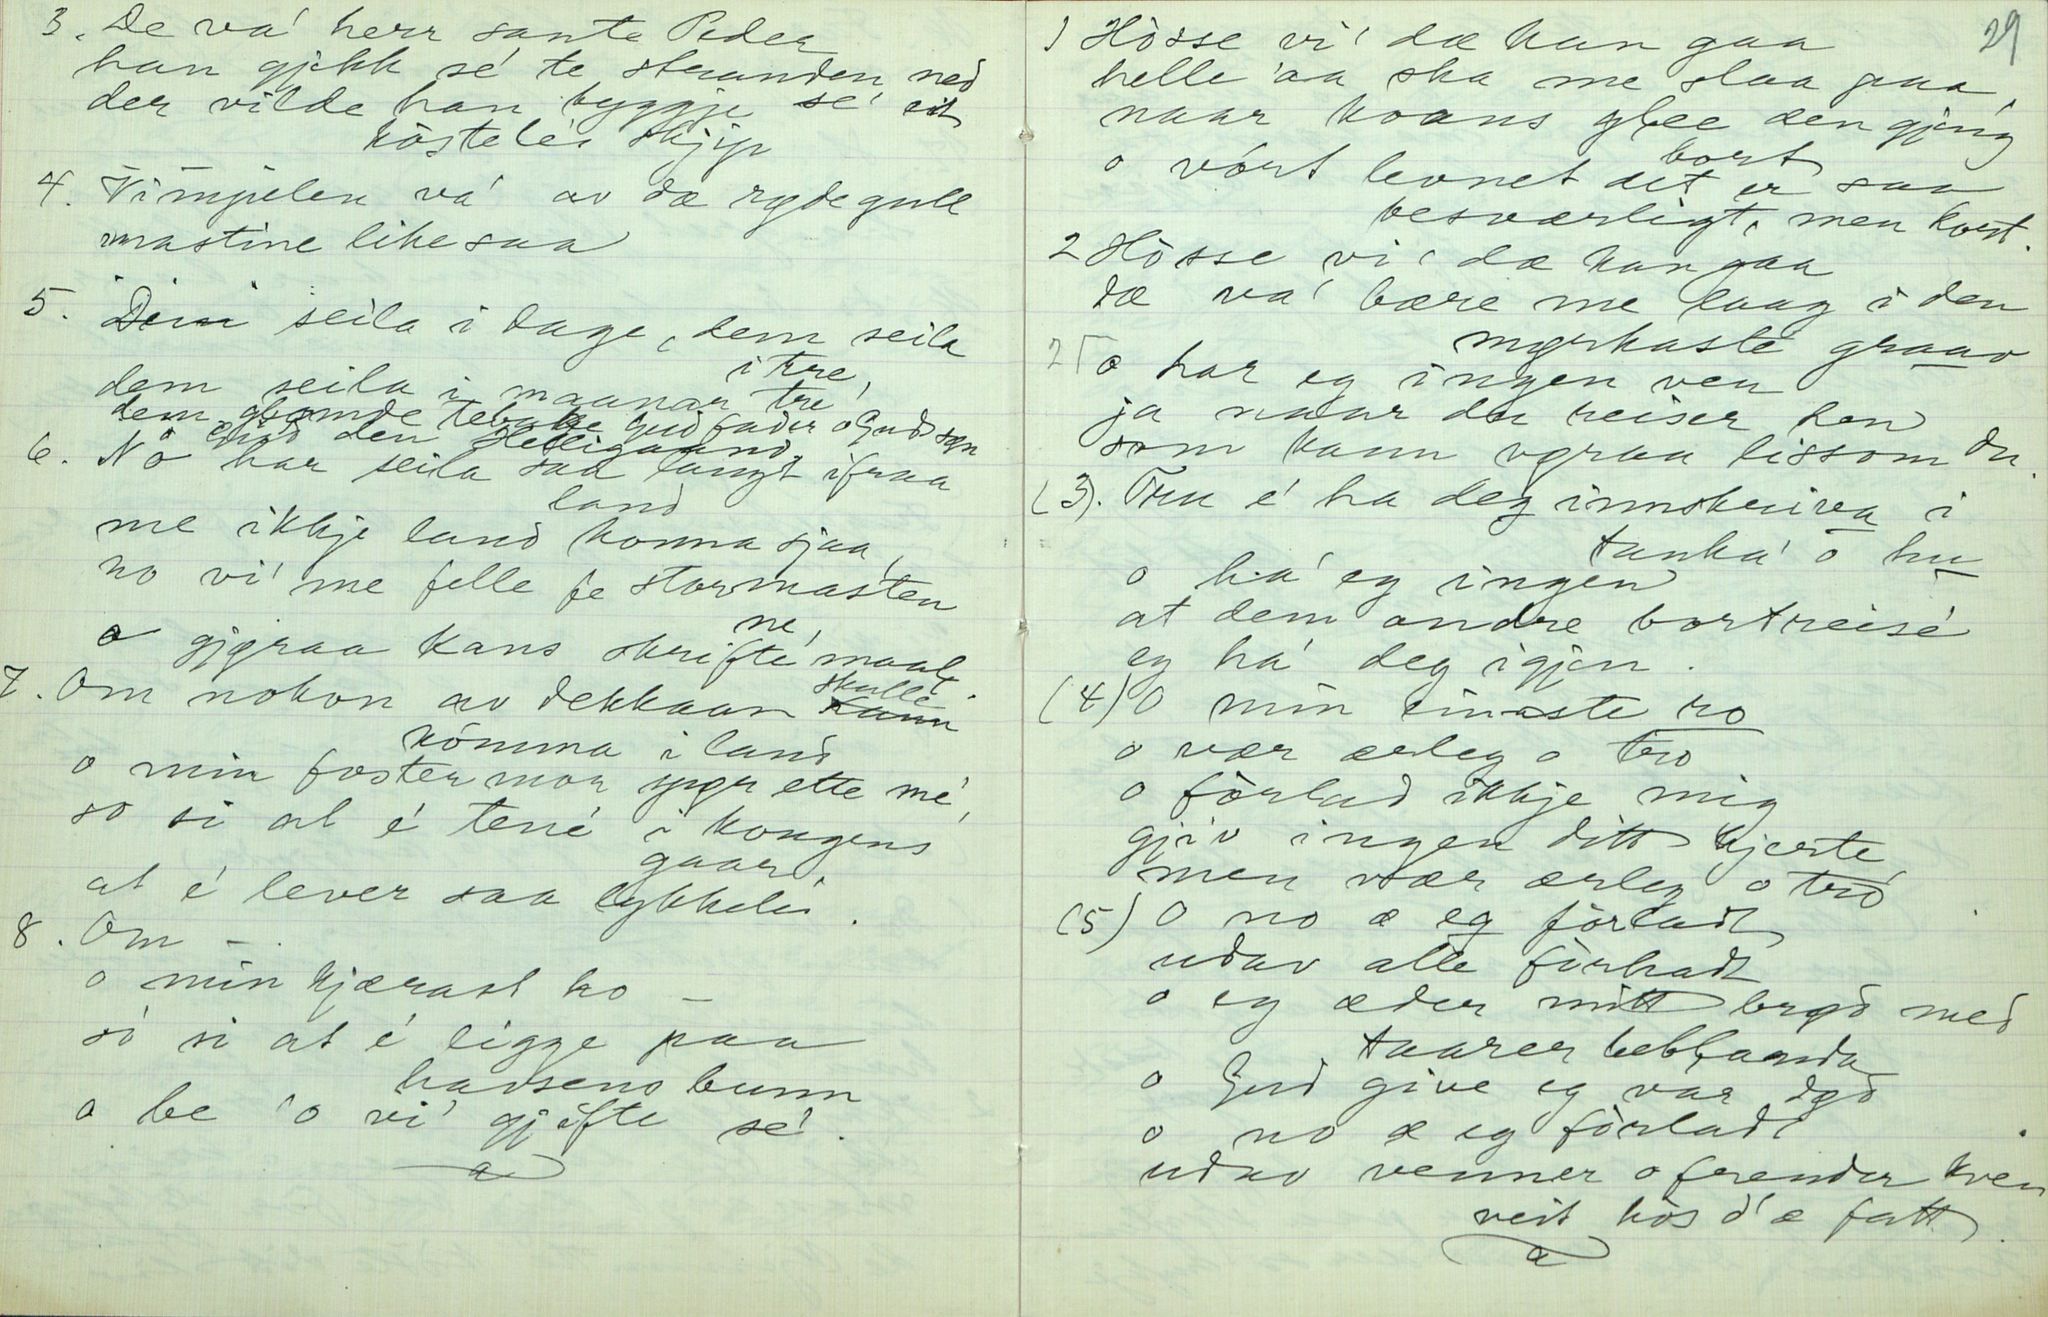 3. De va' herr sante Peder
han gjekk sé te stranden ned
der vilde han byggje sé eit
kòsteléi skjip
4. Vimpelen va' av dæ rydegull
mastine likesaa
5. Deii seila i dage, dem seila
i tre,
dem seila i maanar tre
dem glomde tebake Gud fader o Guds søn
o Gud den Helligaand.
6. No har seila saa langt ifraa
land
me ikkje land konna sjaa,
no vi' me felle fe stormasten
ne,
o gjøraa kans skrifte maal.
7. Om nokon av dekkaan skulle
kómma i land
o min fostermor spør ette mé,
so si at é tené i kongens
gaar,
at é lever saa lykkeléi.
8. Om —
o min kjærast ho —
só si at é ligge paa
havsens bunn
o be 'o vi' gjifte sé.
29
1 Hòsse vi' dæ kan gaa
helle 'aa ska me slaa paa,
naar hoans glee æn gjeng
bort
o vórt levnet det er saa
besværligt, men kort.
2 Hòsse vi' dæ kan gaa
dæ va' bære me laag i den
mørkaste graav
2 o har eg ingen ven
ja naar du reiser hen
som kann vøraa lissom du.
(3). Tru é' ha deg innskriva i
tanka' o hu
o ha' eg ingen
at dem andre bortreisé
eg ha' deg igjen.
(4) O min einaste ro
o vær ærleg o tro
o fòrlad ikkje mig
gjiv ingen ditt hjerte
men vær ærleg o tro
(5) O no æ eg fòrladt
udav alle fòrhadt
o eg æder mitt brød med
taarer beblanda
o Gud give eg var død
o no æ eg fòrladt
udav venner o frender kven
veit hòs d'æ fatt.